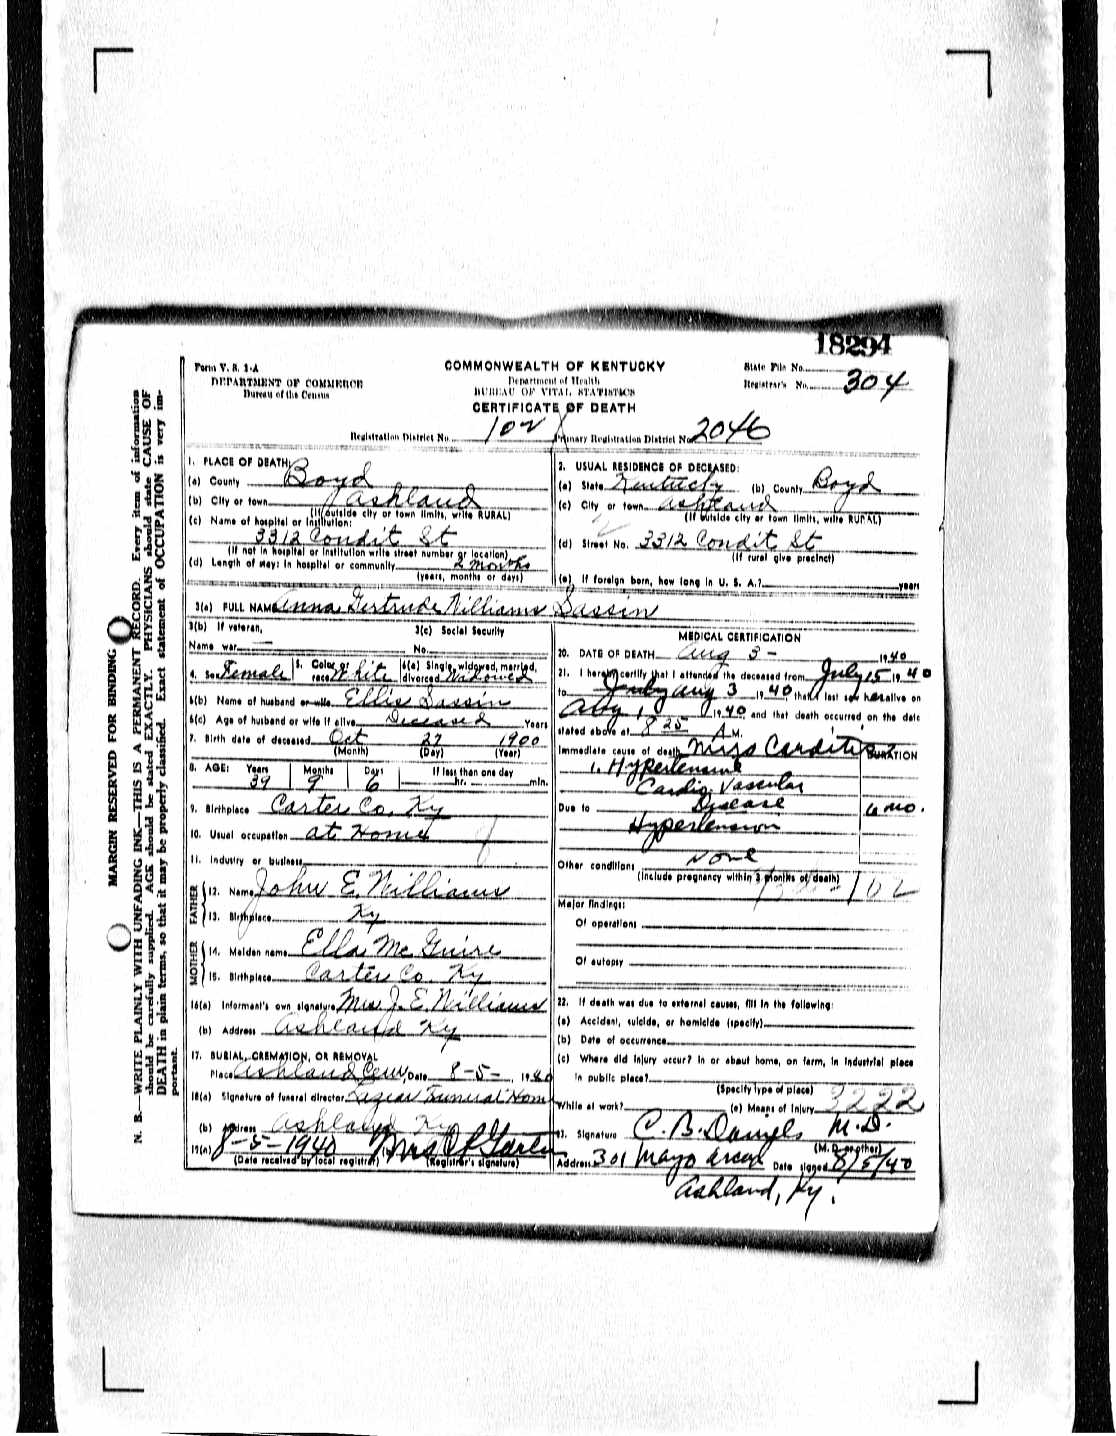 18294
Form V. S. 1-A
DEPARTMENT OF COMMERCE
Bureau of the Census
COMMONWEALTH OF KENTUCKY
Department of Health
BUREAU OF VITAL STATISTICS
CERTIFICATE OF DEATH
State File No.
Registrar's No. 304
Registration District No. 102 Primary Registration District No. 2046
MARGIN RESERVED FOR BINDING
N. B.—WRITE PLAINLY WITH UNFADING INK—THIS IS A PERMANENT RECORD. Every item of information
should be carefully supplied. AGE should be stated EXACTLY. PHYSICIANS should state CAUSE OF
DEATH in plain terms, so that it may be properly classified. Exact statement of OCCUPATION is very im-
portant.
1. PLACE OF DEATH:
(a) County Boyd
(b) City or town Ashland
(If outside city or town limits, write RURAL)
(c) Name of hospital or institution:
3312 Condit St
(If not in hospital or institution write street number or location)
(d) Length of stay: In hospital or community 2 months
(years, months or days)
2. USUAL RESIDENCE OF DECEASED:
(a) State Kentucky (b) County Boyd
(c) City or town Ashland
(If outside city or town limits, write RURAL)
(d) Street No. 3312 Condit St
(If rural give precinct)
(e) If foreign born, how long in U. S. A.? years
3(a) FULL NAME Anna Gertrude Williams Sassin
3(b) If veteran, 3(c) Social Security
Name war No.
4. Sex Female 5. Color or race White 6(a) Single, widowed, married, divorced Widowed
6(b) Name of husband or wife Ellis Sassin
6(c) Age of husband or wife if alive Deceased Years
7. Birth date of deceased Oct 27 1900
(Month) (Day) (Year)
8. AGE: Years Months Days If less than one day
39 9 6 hr. min.
9. Birthplace Carter Co. Ky
10. Usual occupation at Home
11. Industry or business
FATHER
12. Name John E. Williams
13. Birthplace Ky
MOTHER
14. Maiden name Ella McGuire
15. Birthplace Carter Co Ky
16(a) Informant's own signature Mrs J. E. Williams
(b) Address Ashland Ky
17. BURIAL, CREMATION, OR REMOVAL
Place Ashland Cem, Date 8-5-, 1940
18(a) Signature of funeral director Lazear Funeral Home
(b) Address Ashland Ky
19(a) 8-5-1940 Mrs
(Date received by local registrar) (Registrar's signature)
MEDICAL CERTIFICATION
20. DATE OF DEATH Aug 3 - 1940
21. I hereby certify that I attended the deceased from July 15, 1940
to July Aug 3 1940, that I last saw her alive on
Aug 1 1940 and that death occurred on the date
stated above at 8 25 A M.
Immediate cause of death Myo Carditis DURATION
1. Hypertensive
Cardio Vascular
Due to Disease 6 mo.
Hypertension
Other conditions None
(Include pregnancy within 3 months of death)
102
Major findings:
Of operations
Of autopsy
22. If death was due to external causes, fill in the following:
(a) Accident, suicide, or homicide (specify)
(b) Date of occurrence
(c) Where did injury occur? In or about home, on farm, in industrial place
in public place?
(Specify type of place)
While at work? (e) Means of Injury 3222
23. Signature C. B. Daniels M.D.
(M. D. or other)
Address 301 Mayo Arcade Date signed 8/5/40
Ashland, Ky.